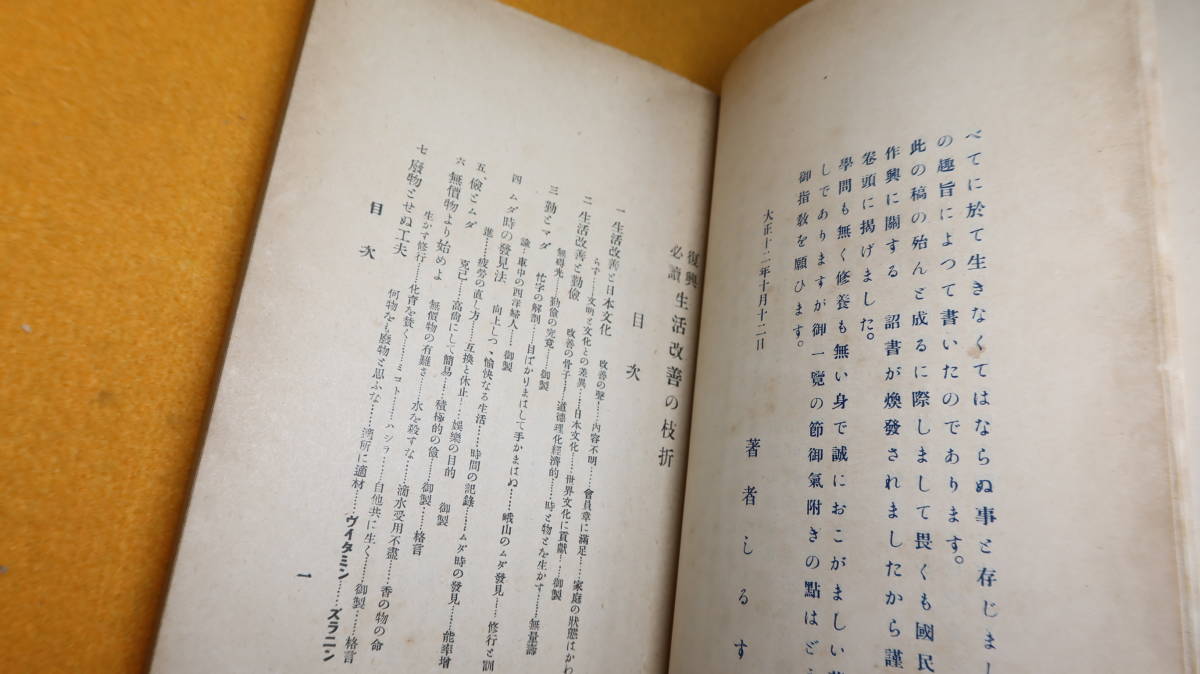 べてに於て生きなくてはならぬ事と存じまし
の趣旨によつて書いたのであります。
此の稿の殆んど成るに際しまして畏くも國民
作興に關する 詔書が煥發されましたから謹
卷頭に揭げました。
學問も無く修養も無い身で誠におこがましい
しでありますが御一覽の節御氣附きの點はど
御指敎を願ひます。
大正十二年十月十二日
著者しるす
復興必讀 生活改善の枝折
目次
一 生活改善と日本文化
改善の聲……內容不明……會員章に滿足……家庭の狀態はかわ
らず……文明と文化との差異……日本文化……世界文化に貢獻……御製
二 生活改善と勤儉
改善の骨子……道德理化經濟的……時と物とを生かす……無量壽
無尋光……勤儉の究竟……御製
三 勤とマダ
忙字の解剖……目ばかりまはして手かまはぬ……峨山のムダ發見……修行と訓
諭……車中の西洋婦人……御製
四 ムダ時の發見法
向上しつゝ愉快なる生活……時間の記錄……ムダ時の發見……能率增
進……疲勞の直し方……互換と休止……娛樂の目的 御製
五、儉とムダ
克己……高尙にして簡易……積極的の儉……御製……格言
六 無價物より始めよ
無價物の有難さ……水を殺すな……滴水受用不盡……香の物の命
生かす修行……化育を贊く……ミコト……ハシラ……自他共に生く……御製……格言
七 廢物とせぬ工夫
何物をも廢物と思ふな……適所に適材……ヴイタミン……ズラニン
目次
一